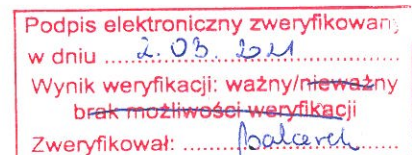 Podpis elektroniczny zweryfikowany
w dniu ....2.03.2021....................
Wynik weryfikacji: ważny/nieważny
brak możliwości weryfikacji
Zweryfikował: ...................